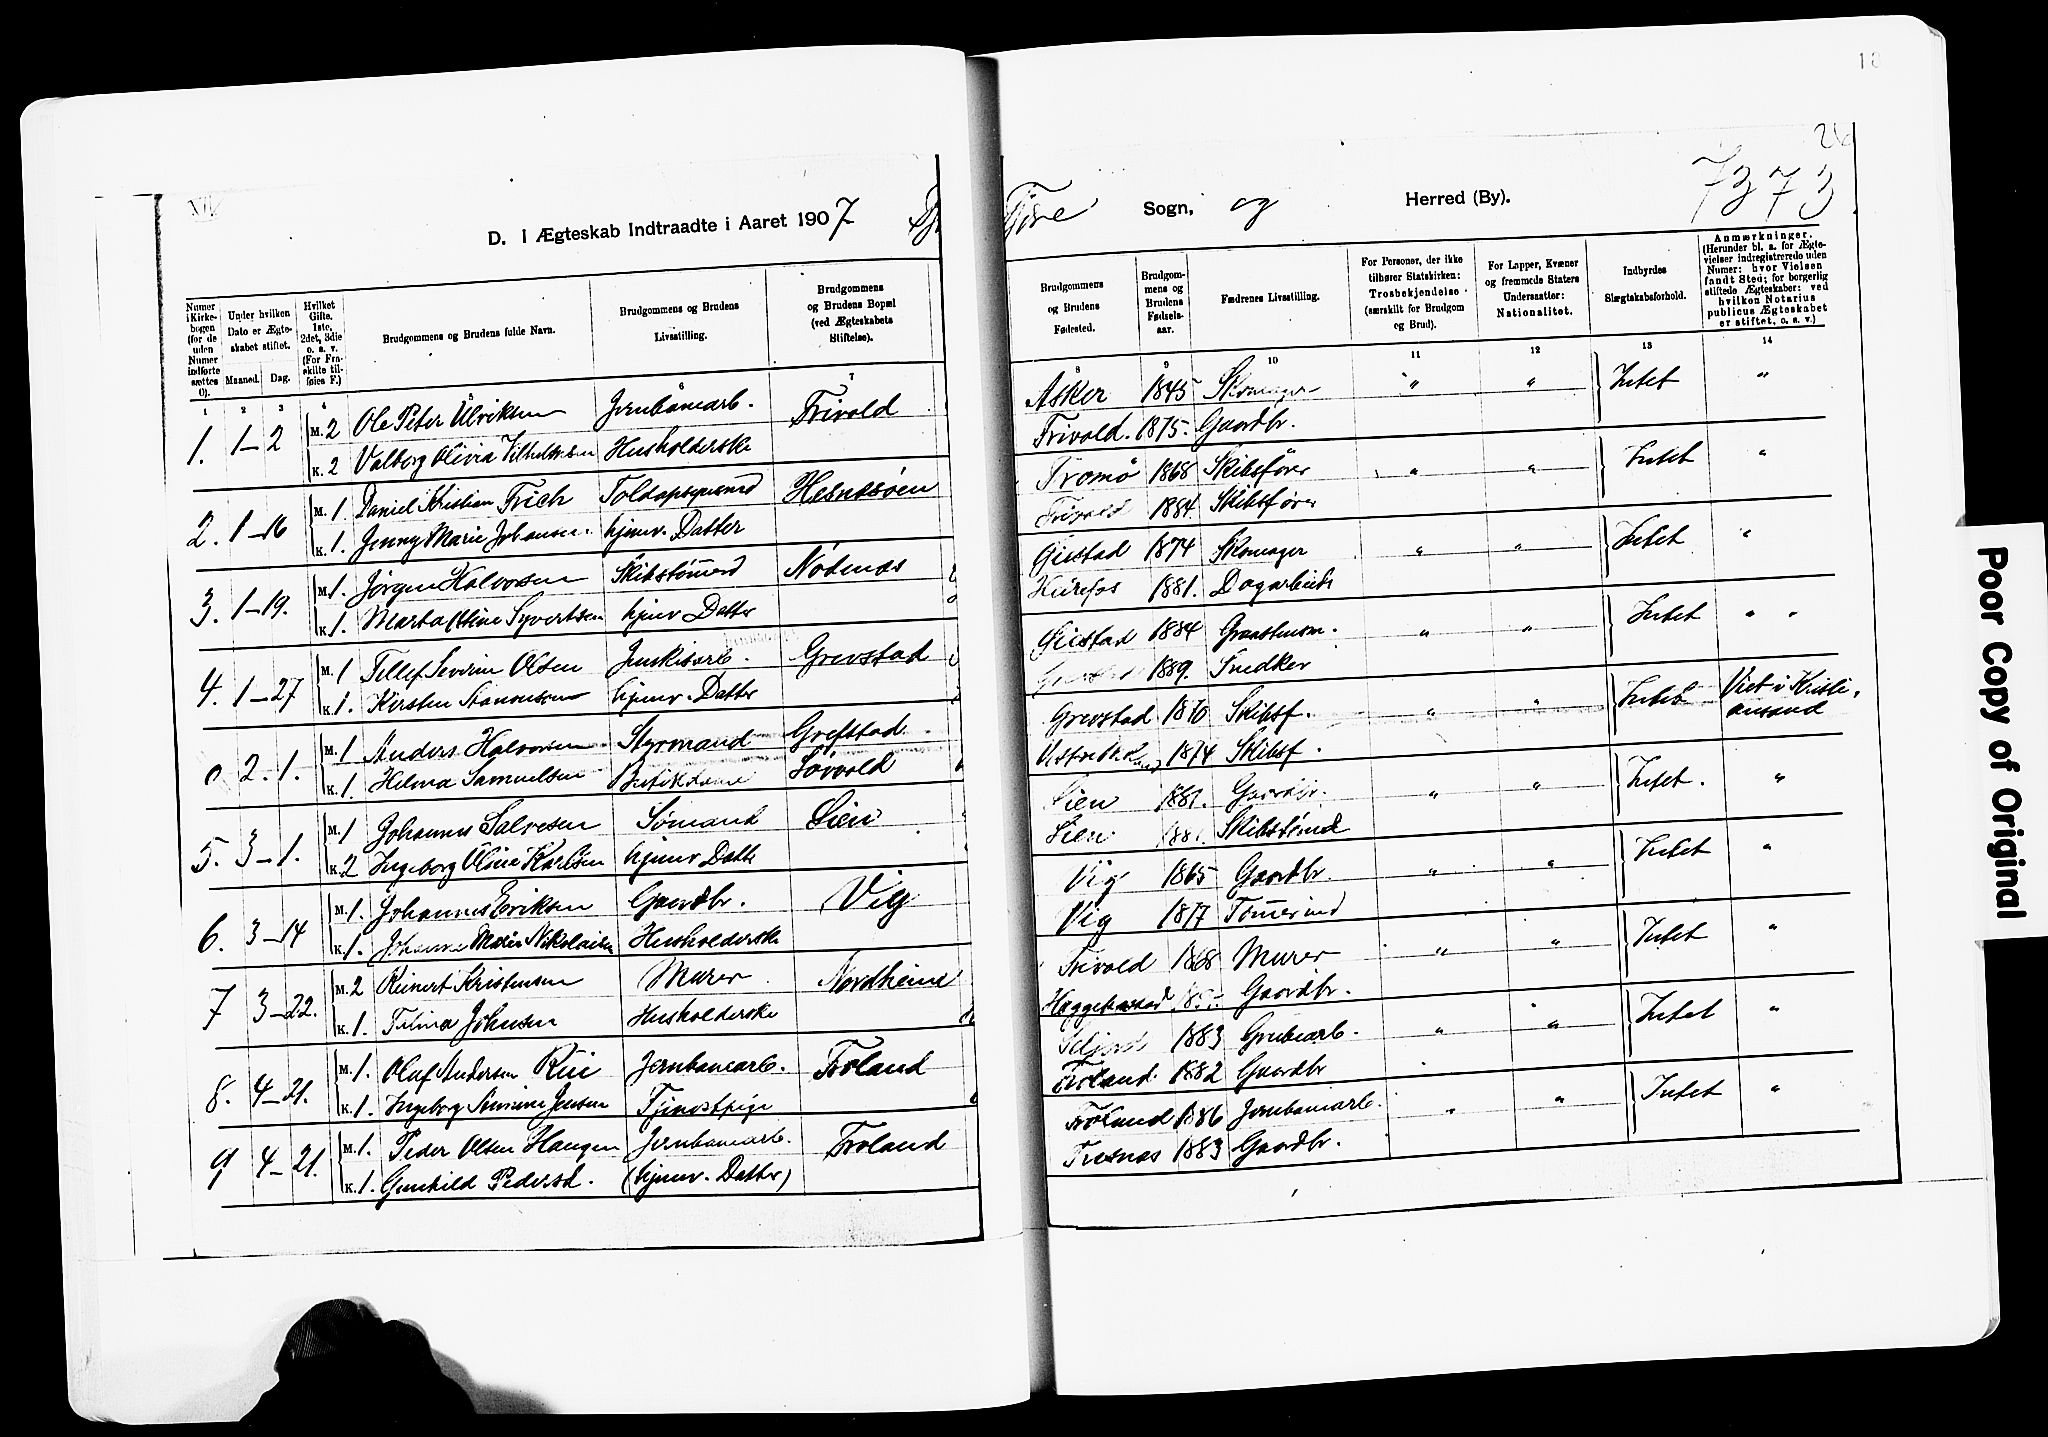 18
26
7373
D. I Ægteskab Indtraadte i Aaret 1907
Fjære Sogn, og Herred (By).
Numer i Kirkebogen (for de uden Numer indførte sættes 0).
Under hvilken Dato er Ægteskabet stiftet.
Maaned. Dag.
Hvilket Gifte. 1ste, 2det, 3die o. s. v. (For Fraskilte tilføies F.)
Brudgommens og Brudens fulde Navn.
Brudgommens og Brudens Livsstilling.
Brudgommens og Brudens Bopæl (ved Ægteskabets Stiftelse).
Brudgommens og Brudens Fødested.
Brudgommens og Brudens Fødselsaar.
Fædrenes Livsstilling.
For Personer, der ikke tilhører Statskirken: Trosbekjendelse (særskilt for Brudgom og Brud).
For Lapper, Kvæner og fremmede Staters Undersaatter: Nationalitet.
Indbyrdes Slægtskabsforhold.
Anmærkninger. (Herunder bl. a. for Ægtevielser indregistrerede uden Numer: hvor Vielsen fandt Sted; for borgerlig stiftede Ægteskaber: ved hvilken Notarius publicus Ægteskabet er stiftet, o. s. v.)
1 2 3 4 5 6 7 8 9 10 11 12 13 14
1. 1-2 M. 2 Ole Peter Ulriksen Jernbanearb. Frivold Asker 1845 Skomager " " Intet "
K. 2 Valborg Olivia Husholderske Frivold. 1875. Gaardbr.
2. 1-16 M. 1. Daniel Kristian Frich Hesnesøen Tromø 1868 Skibsfører " " Intet "
K. 1. Jenny Marie Johansen hjemv. Datter Frivold 1884. Skibsfører
3. 1-19. M. 1. Jørgen Halvorsen Skibstømmd Nødenæs Gistad 1874 Skomager " " Intet "
K. 1. Marta Syvertsen hjemv Datter 1881. Dagarbeider
4. 1-27 M. 1 Tellef Severin Olsen Grevstad 1884 " " Intet " "
K. 1. Kirsten hjemv. Datter 1889. Snedker
0 2. 1. M. 1 Anders Halvorsen Styrmand Grefstad Grevstad 1870 Skibsf. " " Intet Viet i Kristiansand
K. 1. Helma Samuelsen 1874 Skibsf.
5. 3-1. M. 1 Johannes Salvesen Sømand Lien Lien 1881. Gaardbr. " " Intet. "
K. 2 Ingeborg Olina Karlsen hjemv Datte Lien 188 Skibstømmd
6. 3-14 M. 1. Johannes Eriksen Gaardbr. Vig Vig 1865 Gaardbr. " " Intet "
K. 1. Johanne Marie Nikolaisen Husholderske Vig 1877 Tømmermd
7 3-22. M. 2 Reinert Kristensen Murer Nordheim Frivold 1868 Murer " " Intet "
K. 1. Tilma Johnsen Husholderske Gaardbr.
8. 4-21. M. 1. Oluf Andersen Rui Jernbanearb. Froland Seljord 1883 Grubearb. " " Intet "
K. 1. Ingeborg Jensen Tjenestpige Froland 1882 Gaardbr
9 4-21. M. 1. Peder Olsen Haugen Jernbanearb. Froland Froland 1886 Jernbanearb. " " Intet "
K. 1. Gunhild Pedersd. (hjemv. Datter) 1883 Gaardbr.
Poor Copy of Original